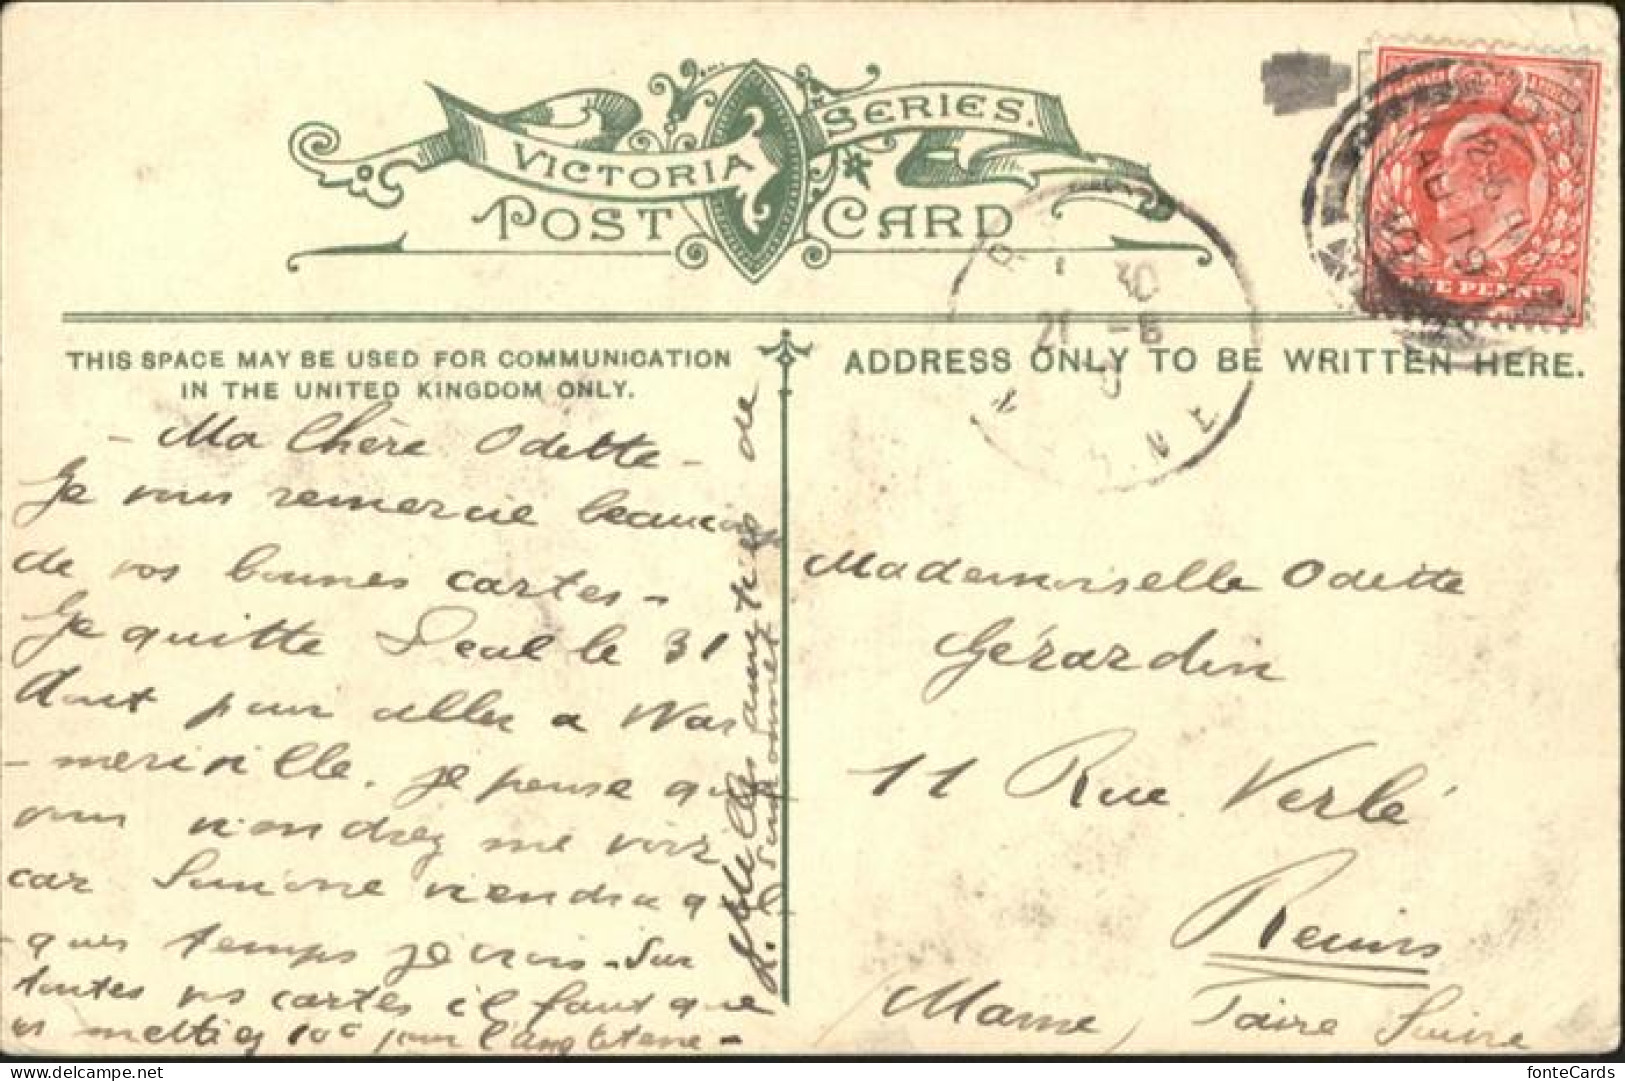 VICTORIA SERIES.
POST CARD
THIS SPACE MAY BE USED FOR COMMUNICATION
IN THE UNITED KINGDOM ONLY.
ADDRESS ONLY TO BE WRITTEN HERE.
ONE PENNY
AU 19
- Ma Chère Odette -
Je vous remercie beaucoup
de vos bonnes cartes -
Je quitte Deal le 31
Aout pour aller a War
- meriville. Je pense que
vous viendrez me voir
car Simone viendra quel
- ques temps je crois - Sur
toutes vos cartes il faut que
vs mettiez 10c pour l'angleterre -
Mille amitiés de
Mademoiselle Odette
Gérardin
11 Rue Verlé
Reims
(Marne) Faire Suivre
fonteCards